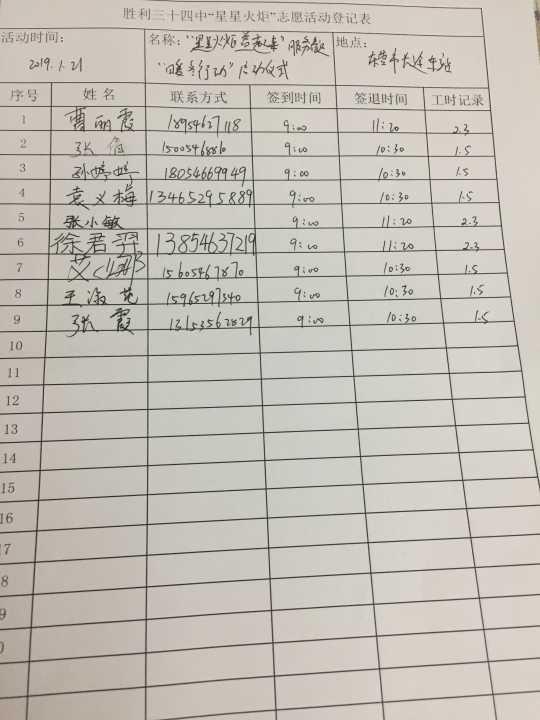 胜利三十四中“星星火炬”志愿活动登记表
活动时间： 名称：“星星火炬 “服务队 地点：
2019.1.21 “暖冬行动”启动仪式 东营市长途车站
序号 姓名 联系方式 签到时间 签退时间 工时记录
1 曹丽霞 18954627118 9:00 11:20 2.3
2 张 15005468810 9:00 10:30 1.5
3 孙婷婷 18054669949 9:00 10:30 1.5
4 袁义梅 13465295889 9:00 10:30 1.5
5 张小敏 9:00 11:20 2.3
6 徐君羿 13854637219 9:00 11:20 2.3
7 15605467870 9:00 10:30 1.5
8 王淑花 15965297340 9:00 10:30 1.5
9 张霞 13153562829 9:00 10:30 1.5
10
11
12
13
14
15
16
7
8
9
0